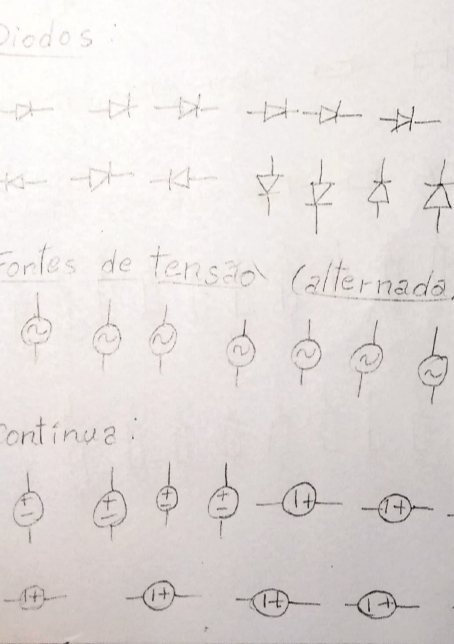 Diodos:
Fontes de tensão (alternada
Contínua: